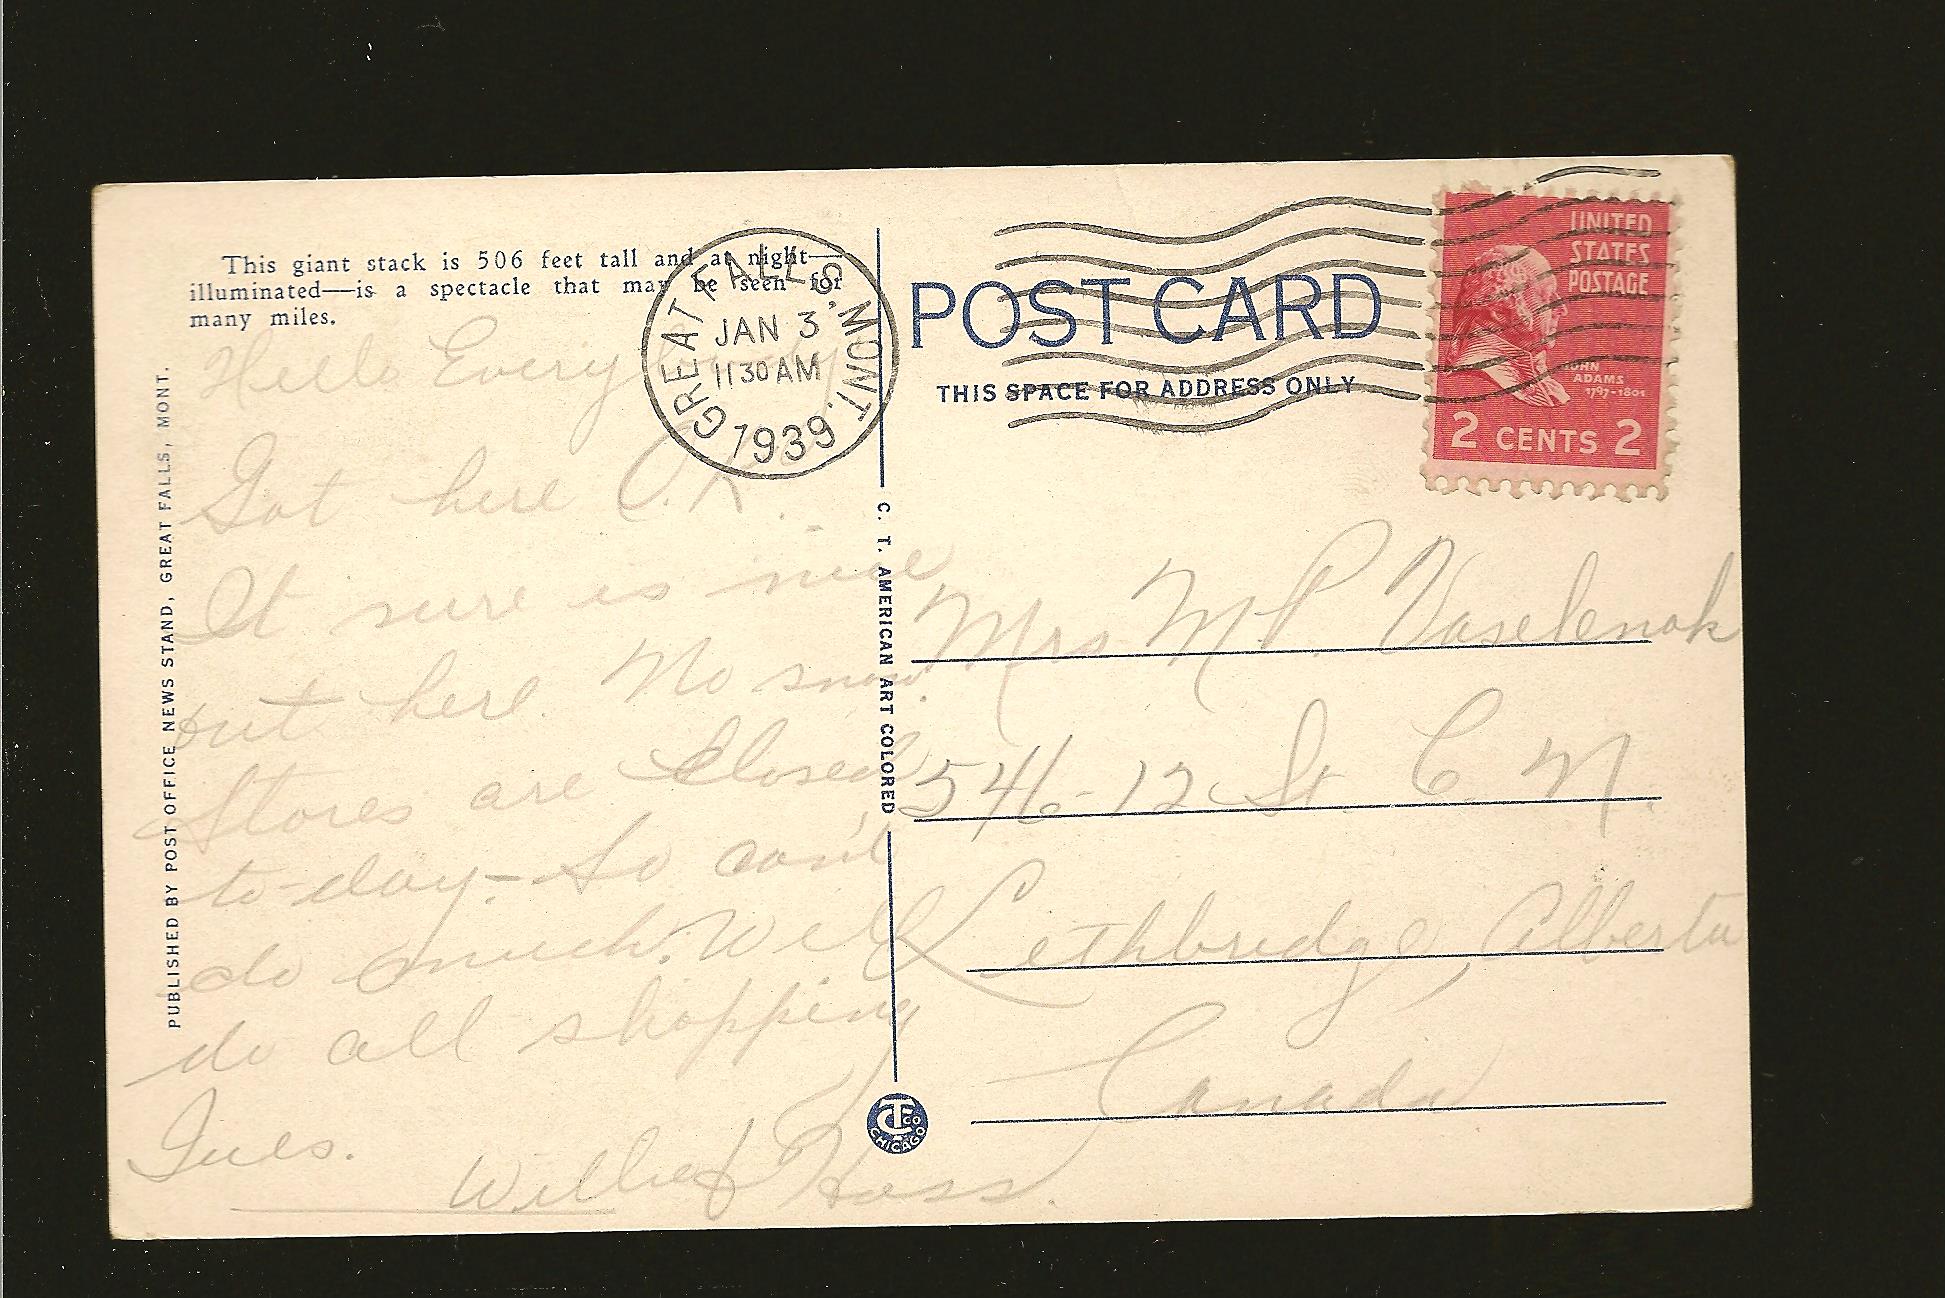 This giant stack is 506 feet tall and at night—
illuminated—is a spectacle that may be seen for
many miles.
PUBLISHED BY POST OFFICE NEWS STAND, GREAT FALLS, MONT.
Hello Everybody
Got here O.K.
It sure is nice
out here. No snow.
Stores are closed
to-day - So can't
do much. Will
do all shopping
Tues.
GREAT FALLS, MONT.
JAN 3
11 30 AM
1939
POST CARD
THIS SPACE FOR ADDRESS ONLY
UNITED
STATES
POSTAGE
JOHN
ADAMS
1797-1801
2 CENTS 2
C. T. AMERICAN ART COLORED
Mrs M P. Vaselenak
546-12 St C. N.
Lethbridge, Alberta
Canada
CT CO
CHICAGO